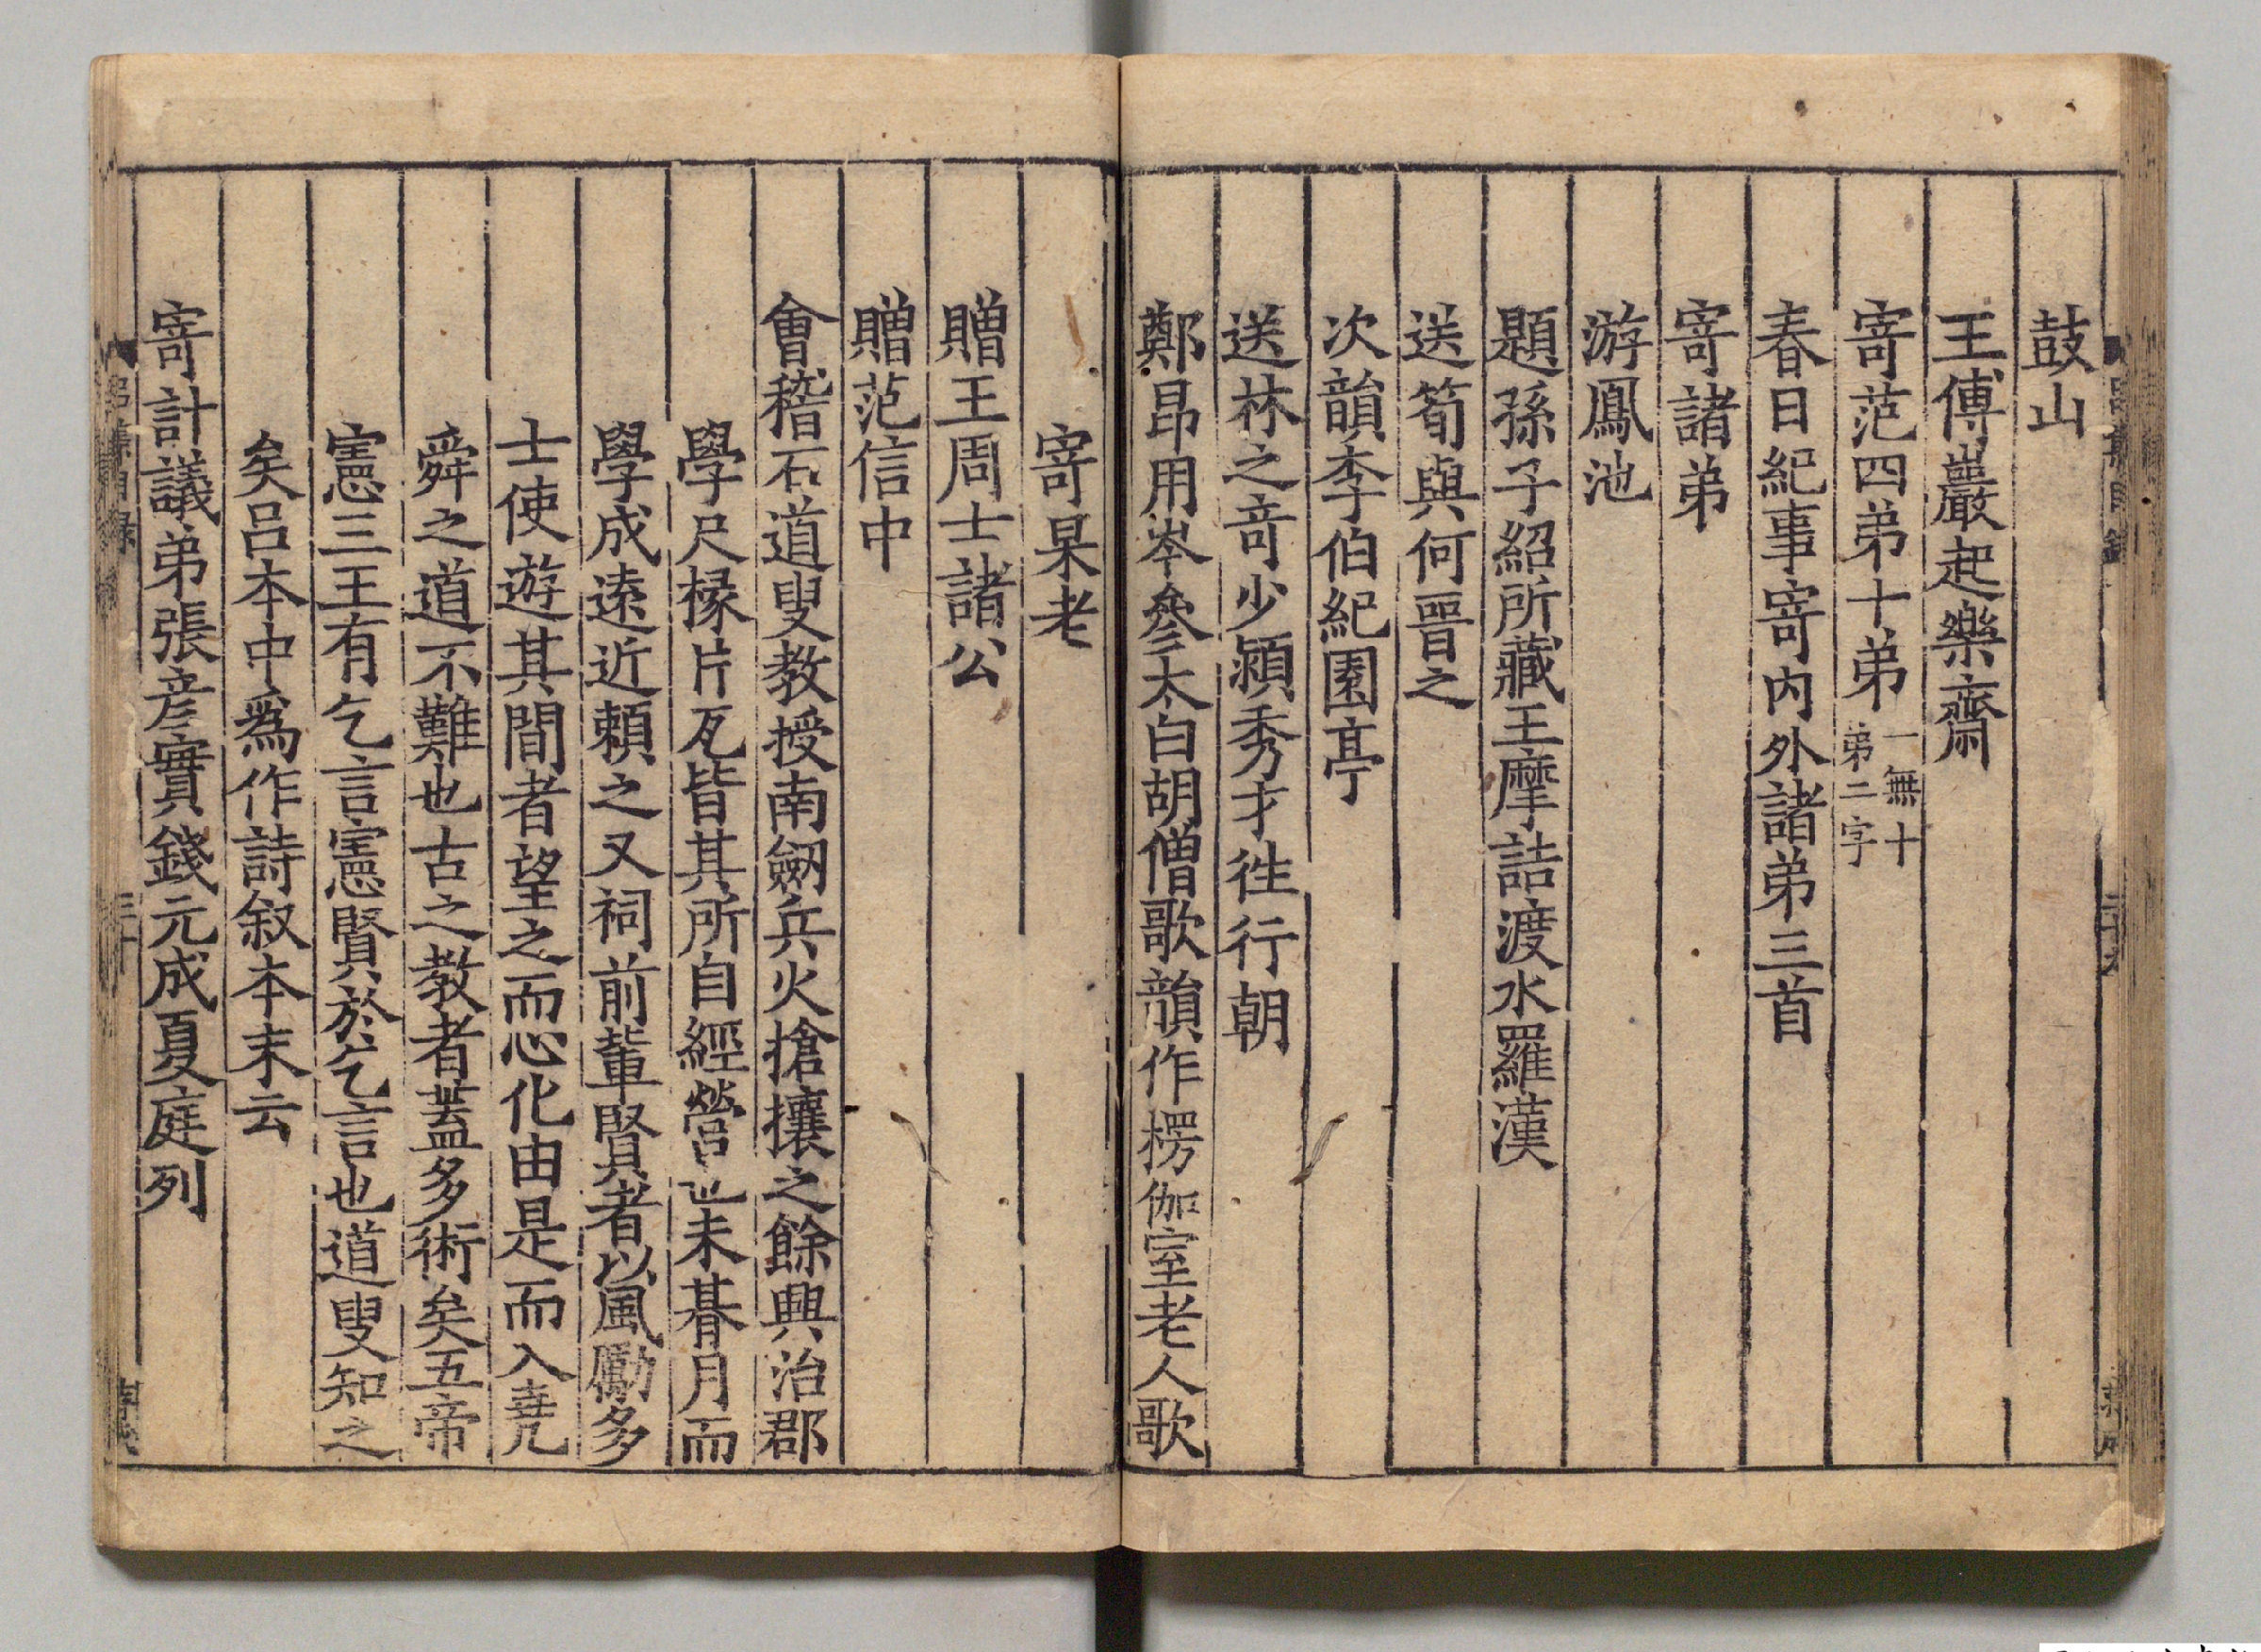 鼓山
王傅巖起樂齋
寄范四弟十弟一無十弟二字
春日紀事寄内外諸弟三首
寄諸弟
游鳳池
題孫子紹所藏王摩詰渡水羅漢
送筍與何晉之
次韻李伯紀園亭
送林之奇少潁秀才徃行朝
鄭昂用岑參太白胡僧歌韻作楞伽室老人歌
寄杲老
贈王周士諸公
贈范信中
會稽石道叟教授南劒兵火搶攘之餘興治郡
學尺椽片瓦皆其所自經營也未朞月而
學成遠近頼之又祠前輩賢者以風勵多
士使遊其間者望之而心化由是而入堯
舜之道不難也古之教者蓋多術矣五帝
憲三王有乞言憲賢於乞言也道叟知之
矣吕本中爲作詩叙本末云
寄計議弟張彦實錢元成夏庭列